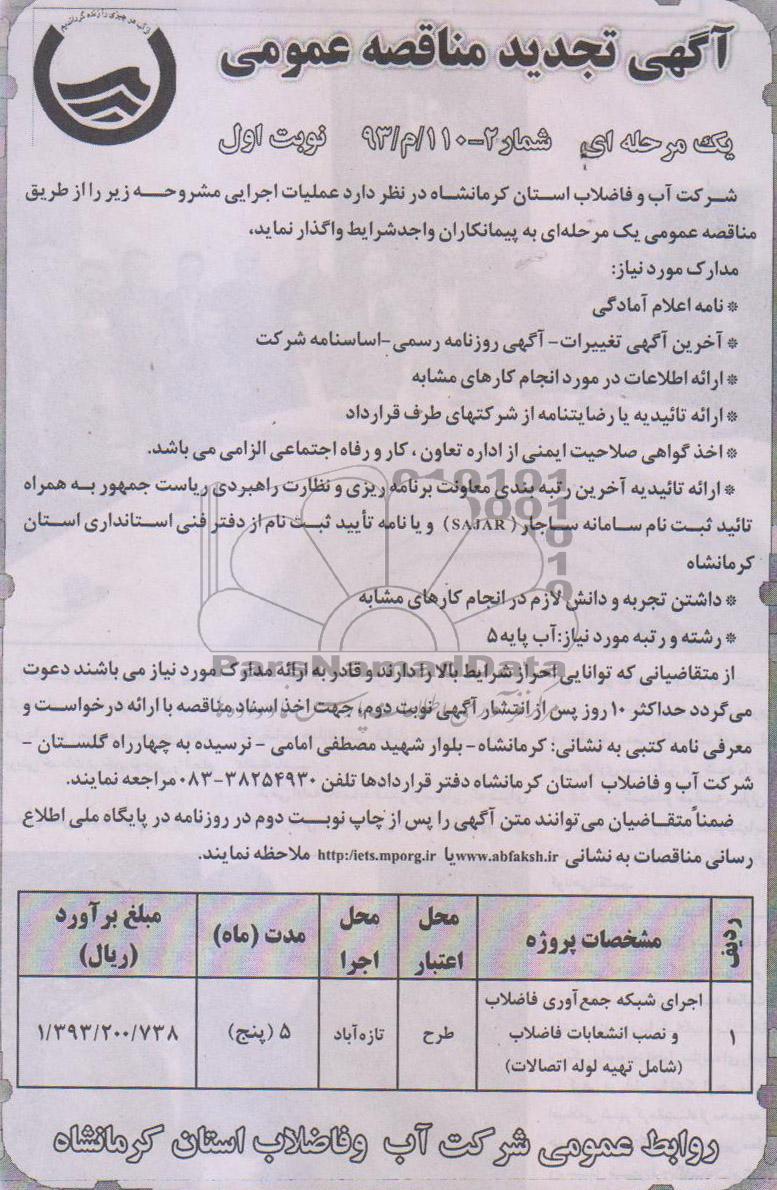 از آب هر چیزی را زنده گردانیدیم
آگهی تجدید مناقصه عمومی
یک مرحله ای شمار۲-۱۱۰/م/۹۳ نوبت اول
شرکت آب و فاضلاب استان کرمانشاه در نظر دارد عملیات اجرایی مشروحه زیر را از طریق
مناقصه عمومی یک مرحله‌ای به پیمانکاران واجدشرایط واگذار نماید،
مدارک مورد نیاز:
* نامه اعلام آمادگی
* آخرین آگهی تغییرات- آگهی روزنامه رسمی-اساسنامه شرکت
* ارائه اطلاعات در مورد انجام کارهای مشابه
* ارائه تائیدیه یا رضایتنامه از شرکتهای طرف قرارداد
* اخذ گواهی صلاحیت ایمنی از اداره تعاون ، کار و رفاه اجتماعی الزامی می باشد.
* ارائه تائیدیه آخرین رتبه بندی معاونت برنامه ریزی و نظارت راهبردی ریاست جمهور به همراه
تائید ثبت نام سامانه ساجار( SAJAR) و یا نامه تأیید ثبت نام از دفتر فنی استانداری استان
کرمانشاه
* داشتن تجربه و دانش لازم در انجام کارهای مشابه
* رشته و رتبه مورد نیاز:آب پایه۵
ParsNamadData
از متقاضیانی که توانایی احراز شرایط بالا را دارند و قادر به ارائه مدارک مورد نیاز می باشند دعوت
می گردد حداکثر ۱۰ روز پس از انتشار آگهی نوبت دوم، جهت اخذ اسناد مناقصه با ارائه درخواست و
معرفی نامه کتبی به نشانی: کرمانشاه- بلوار شهید مصطفی امامی - نرسیده به چهارراه گلستان -
شرکت آب و فاضلاب استان کرمانشاه دفتر قراردادها تلفن ۳۸۲۵۴۹۳۰-۰۸۳مراجعه نمایند.
ضمناً متقاضیان می توانند متن آگهی را پس از چاپ نوبت دوم در روزنامه در پایگاه ملی اطلاع
رسانی مناقصات به نشانی www.abfaksh.irیا http:/iets.mporg.ir ملاحظه نمایند.
ردیف مشخصات پروژه محل اعتبار محل اجرا مدت (ماه) مبلغ برآورد (ریال)
۱ اجرای شبکه جمع‌آوری فاضلاب
و نصب انشعابات فاضلاب
(شامل تهیه لوله اتصالات) طرح تازه‌آباد ۵ (پنج) ۱/۳۹۳/۲۰۰/۷۳۸
روابط عمومی شرکت آب وفاضلاب استان کرمانشاه